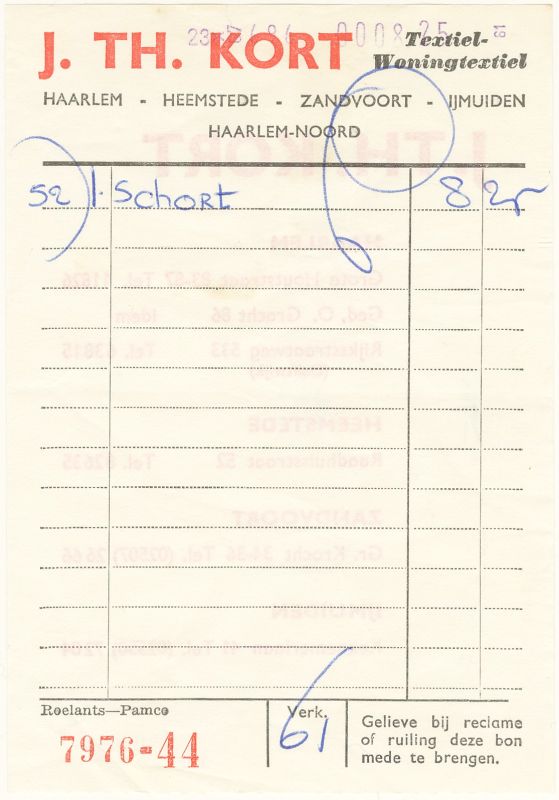 0008.25
81
J. TH. KORT
Textiel-
Woningtextiel
HAARLEM - HEEMSTEDE - ZANDVOORT - IJMUIDEN
HAARLEM-NOORD
52 1. Schort 8 25
Roelants—Pamco
Verk.
61
7976-44
Gelieve bij reclame
of ruiling deze bon
mede te brengen.